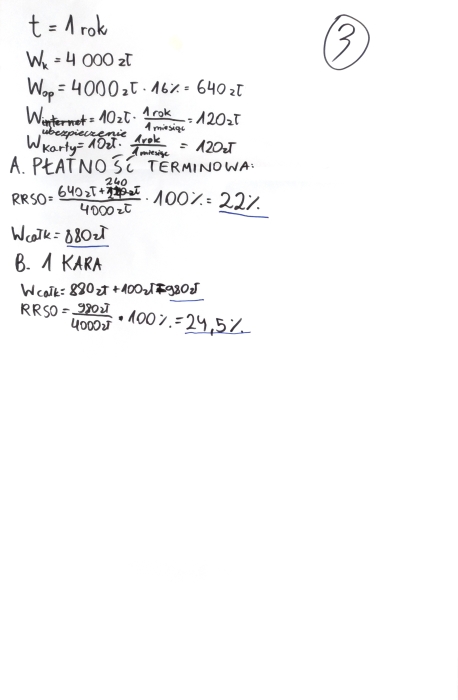 t = 1 rok
3
Wk = 4 000 zł
Wop = 4000 zł · 16% = 640 zł
Winternet = 10zł · 1 rok / 1 miesiąc = 120zł
ubezpieczenie
Wkarty = 10zł · 1 rok / 1 miesiąc = 120zł
A. PŁATNOŚĆ TERMINOWA:
RRSO = 640 zł + 240 zł / 4000 zł · 100% = 22%
Wcałk = 880zł
B. 1 KARA
Wcałk = 880 zł + 100 zł = 980 zł
RRSO = 980zł / 4000zł · 100% = 24,5%